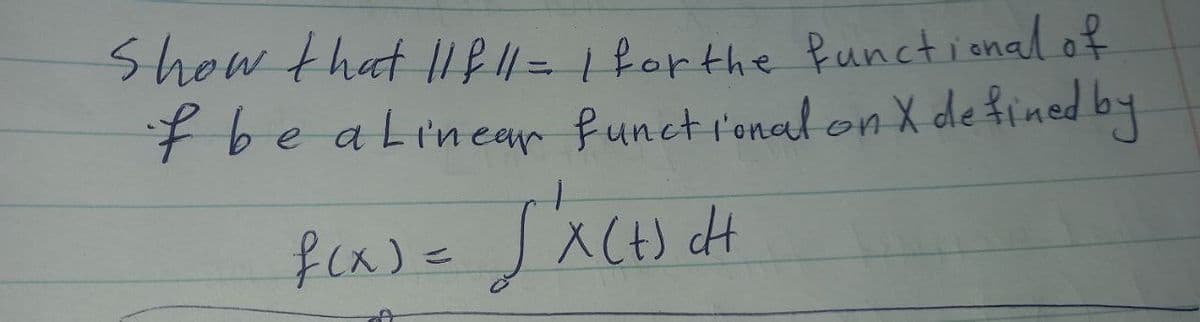 Show that ||f|| = 1 for the functional of
f be a Linear functional on X defined by
f(x) = ∫₀¹ x(t) dt